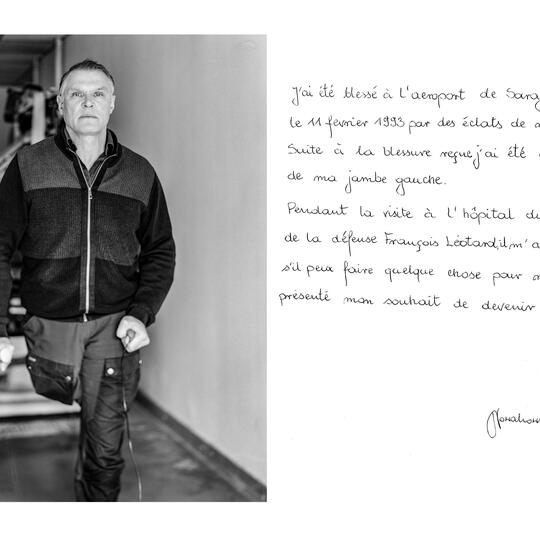 J'ai été blessé à l'aeroport de Saraj
le 11 fevrier 1993 par des éclats de
Suite à la blessure reçue j'ai été
de ma jambe gauche.
Pendant la visite à l'hôpital du
de la défense François Léotard, il m'a
s'il peux faire quelque chose pour
présenté mon souhait de devenir